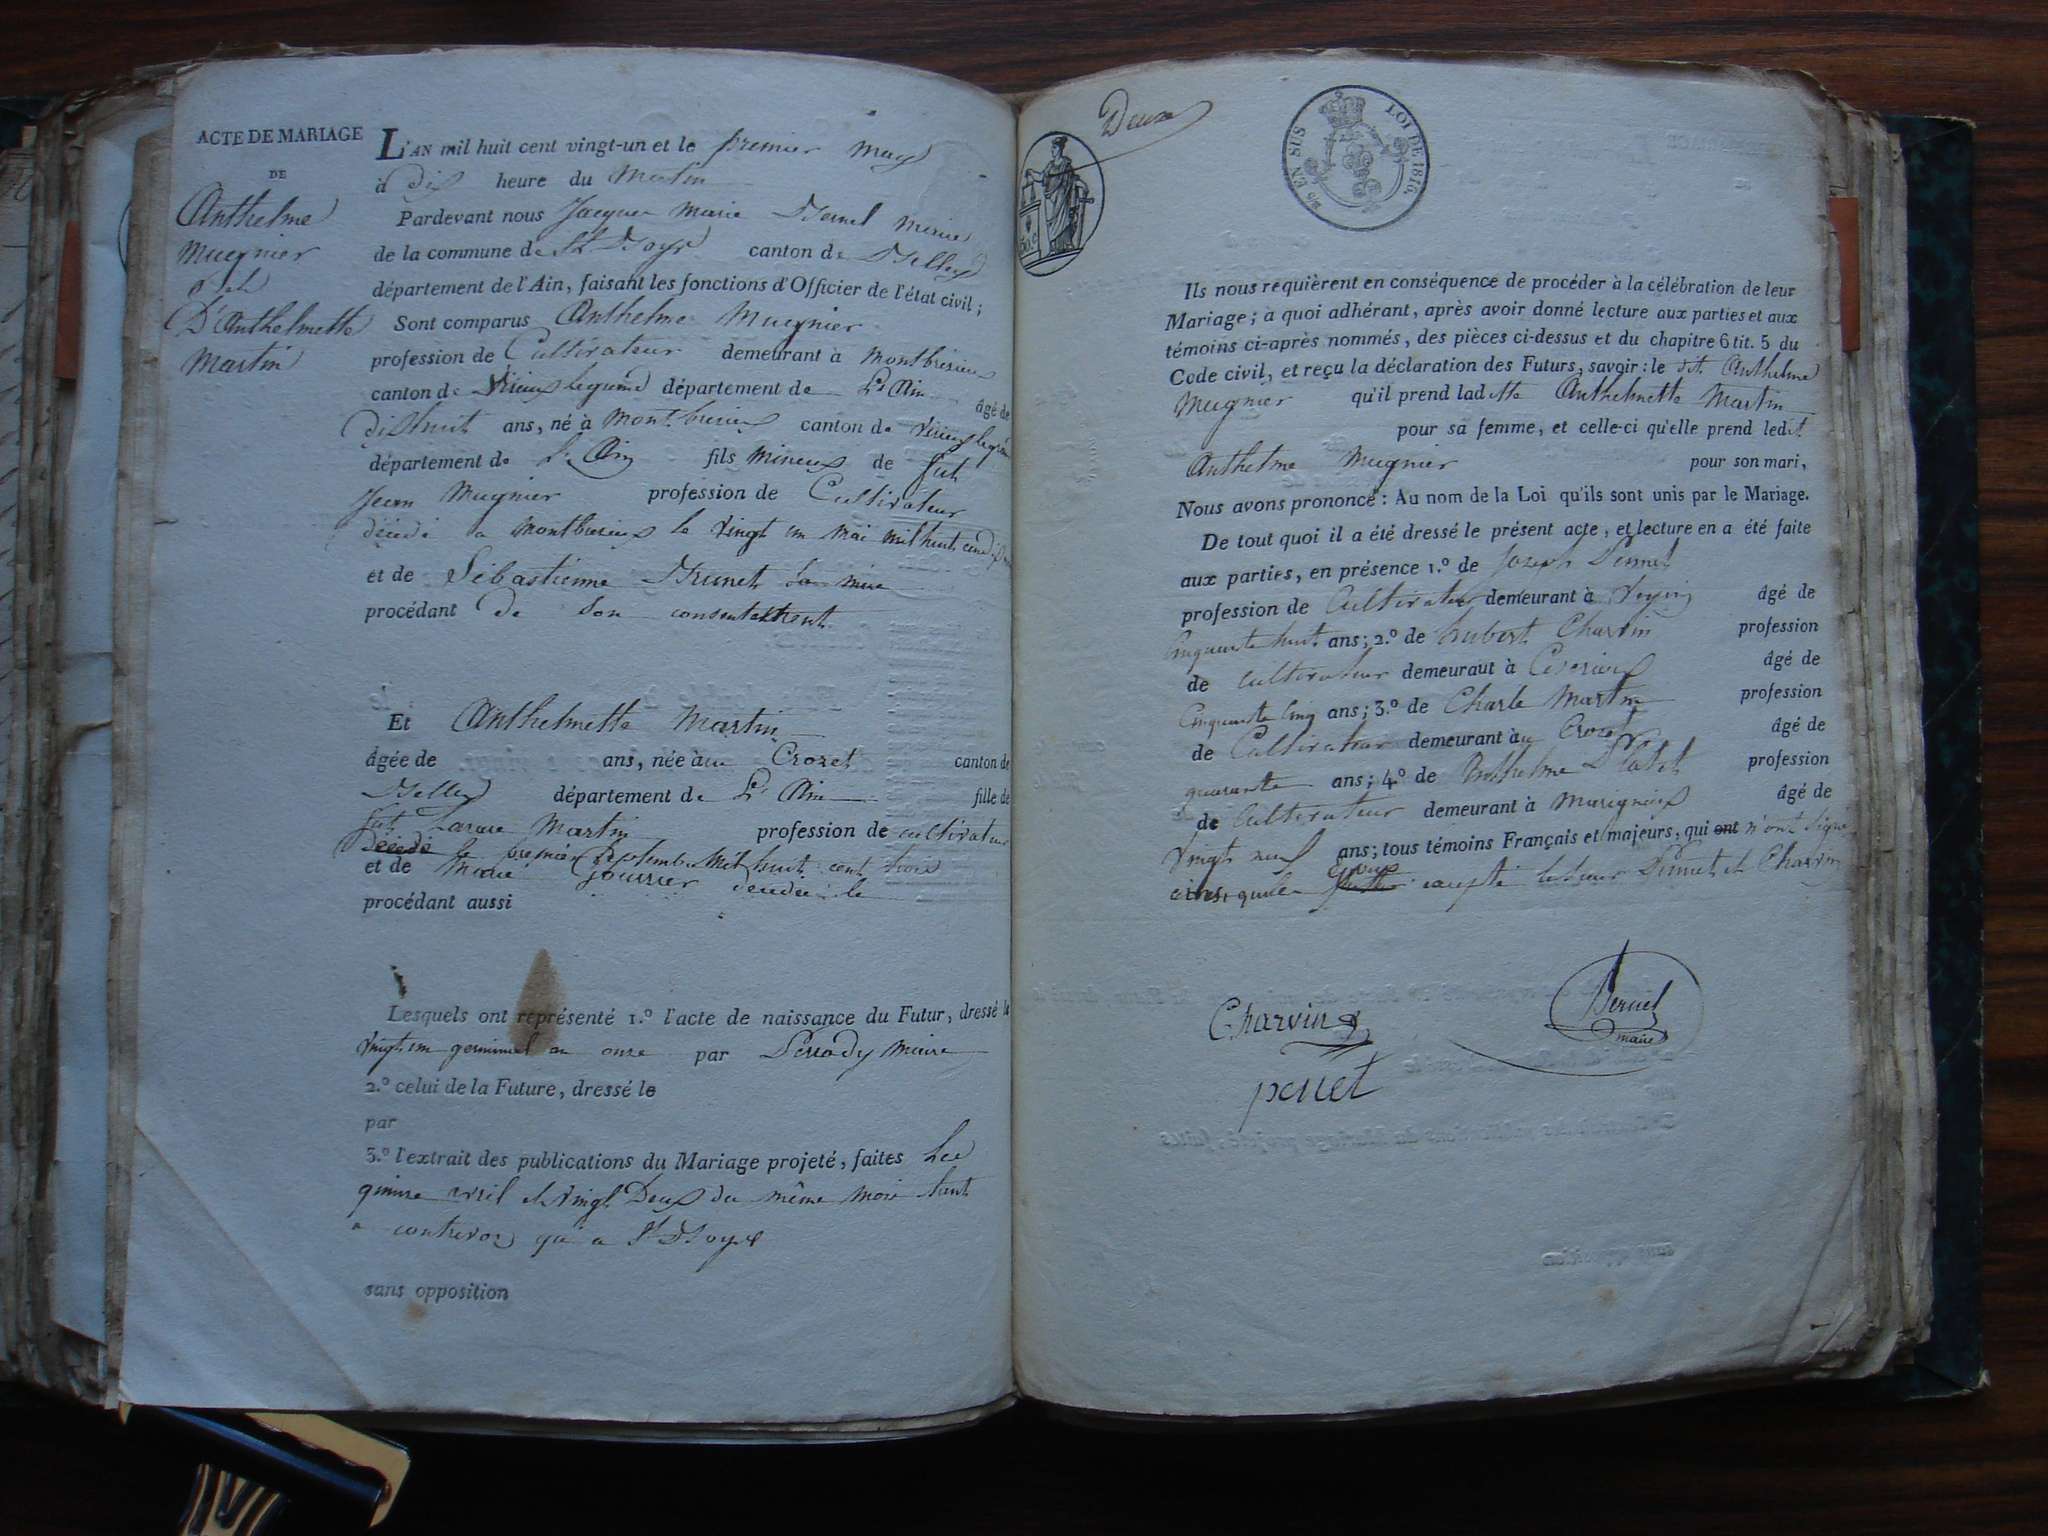 ACTE DE MARIAGE
DE
Anthelme
Mugnier
et
D'Anthelmette
Martin
L'AN mil huit cent vingt-un et le premier may
à dix heure du Matin
Pardevant nous Jacques Marie Bernel Maire
de la commune de St Boys canton de Belley
département de l'Ain, faisant les fonctions d'Officier de l'état civil ;
Sont comparus Anthelme Mugnier
profession de Cultivateur demeurant à Montbrerieux
canton de Virieu le grand département de L'Ain âgé de
dishuit ans, né à canton de Virieu le grand
département de L'Ain fils mineur de fut
Jean Mugnier profession de Cultivateur
décédé a le vingt un mai mil huit cent
et de Sébastienne Brunet sa mère
procédant de son consentement
Et Anthelmette Martin
âgée de ans, née au Crozet canton de
Belley département de L'Ain fille de
fut Lazare Martin profession de cultivateur
Décédé le premier septembre mil huit cent trois
et de Marie Gourrier décédée le
procédant aussi
Lesquels ont représenté 1.º l'acte de naissance du Futur, dressé le
vingt un germinal an onze par Perrody Maire
2.º celui de la Future, dressé le
par
3.º l'extrait des publications du Mariage projeté, faites Les
quinze avril et vingt Deux du même mois tant
a contrevoz qu'a St Boys
sans opposition
Deux
UN SUS
LOI DE 1816.
50 c
Ils nous requièrent en conséquence de procéder à la célébration de leur
Mariage ; à quoi adhérant, après avoir donné lecture aux parties et aux
témoins ci-après nommés, des pièces ci-dessus et du chapitre 6 tit. 5 du
Code civil, et reçu la déclaration des Futurs, savoir : le dit Anthelme
Mugnier qu'il prend ladette Anthelmette Martin
pour sa femme, et celle-ci qu'elle prend ledit
Anthelme Mugnier pour son mari,
Nous avons prononcé : Au nom de la Loi qu'ils sont unis par le Mariage.
De tout quoi il a été dressé le présent acte, et lecture en a été faite
aux parties, en présence 1.º de Joseph Pennet
profession de Cultivateur demeurant à âgé de
Cinquante huit ans ; 2.º de hubert Charvin profession
de cultivateur demeurant à Ceyzerieux âgé de
Cinquante Cinq ans ; 3.º de Charle Martin profession
de Cultivateur demeurant àu Crozet âgé de
quarante ans ; 4.º de Anthelme profession
de Cultivateur demeurant à Marignieux âgé de
vingt neuf ans ; tous témoins Français et majeurs, qui ont n'ont signé
ainsi que les Epoux excepté Pennet et Charvin
Charvin
Bernel
maire
penet